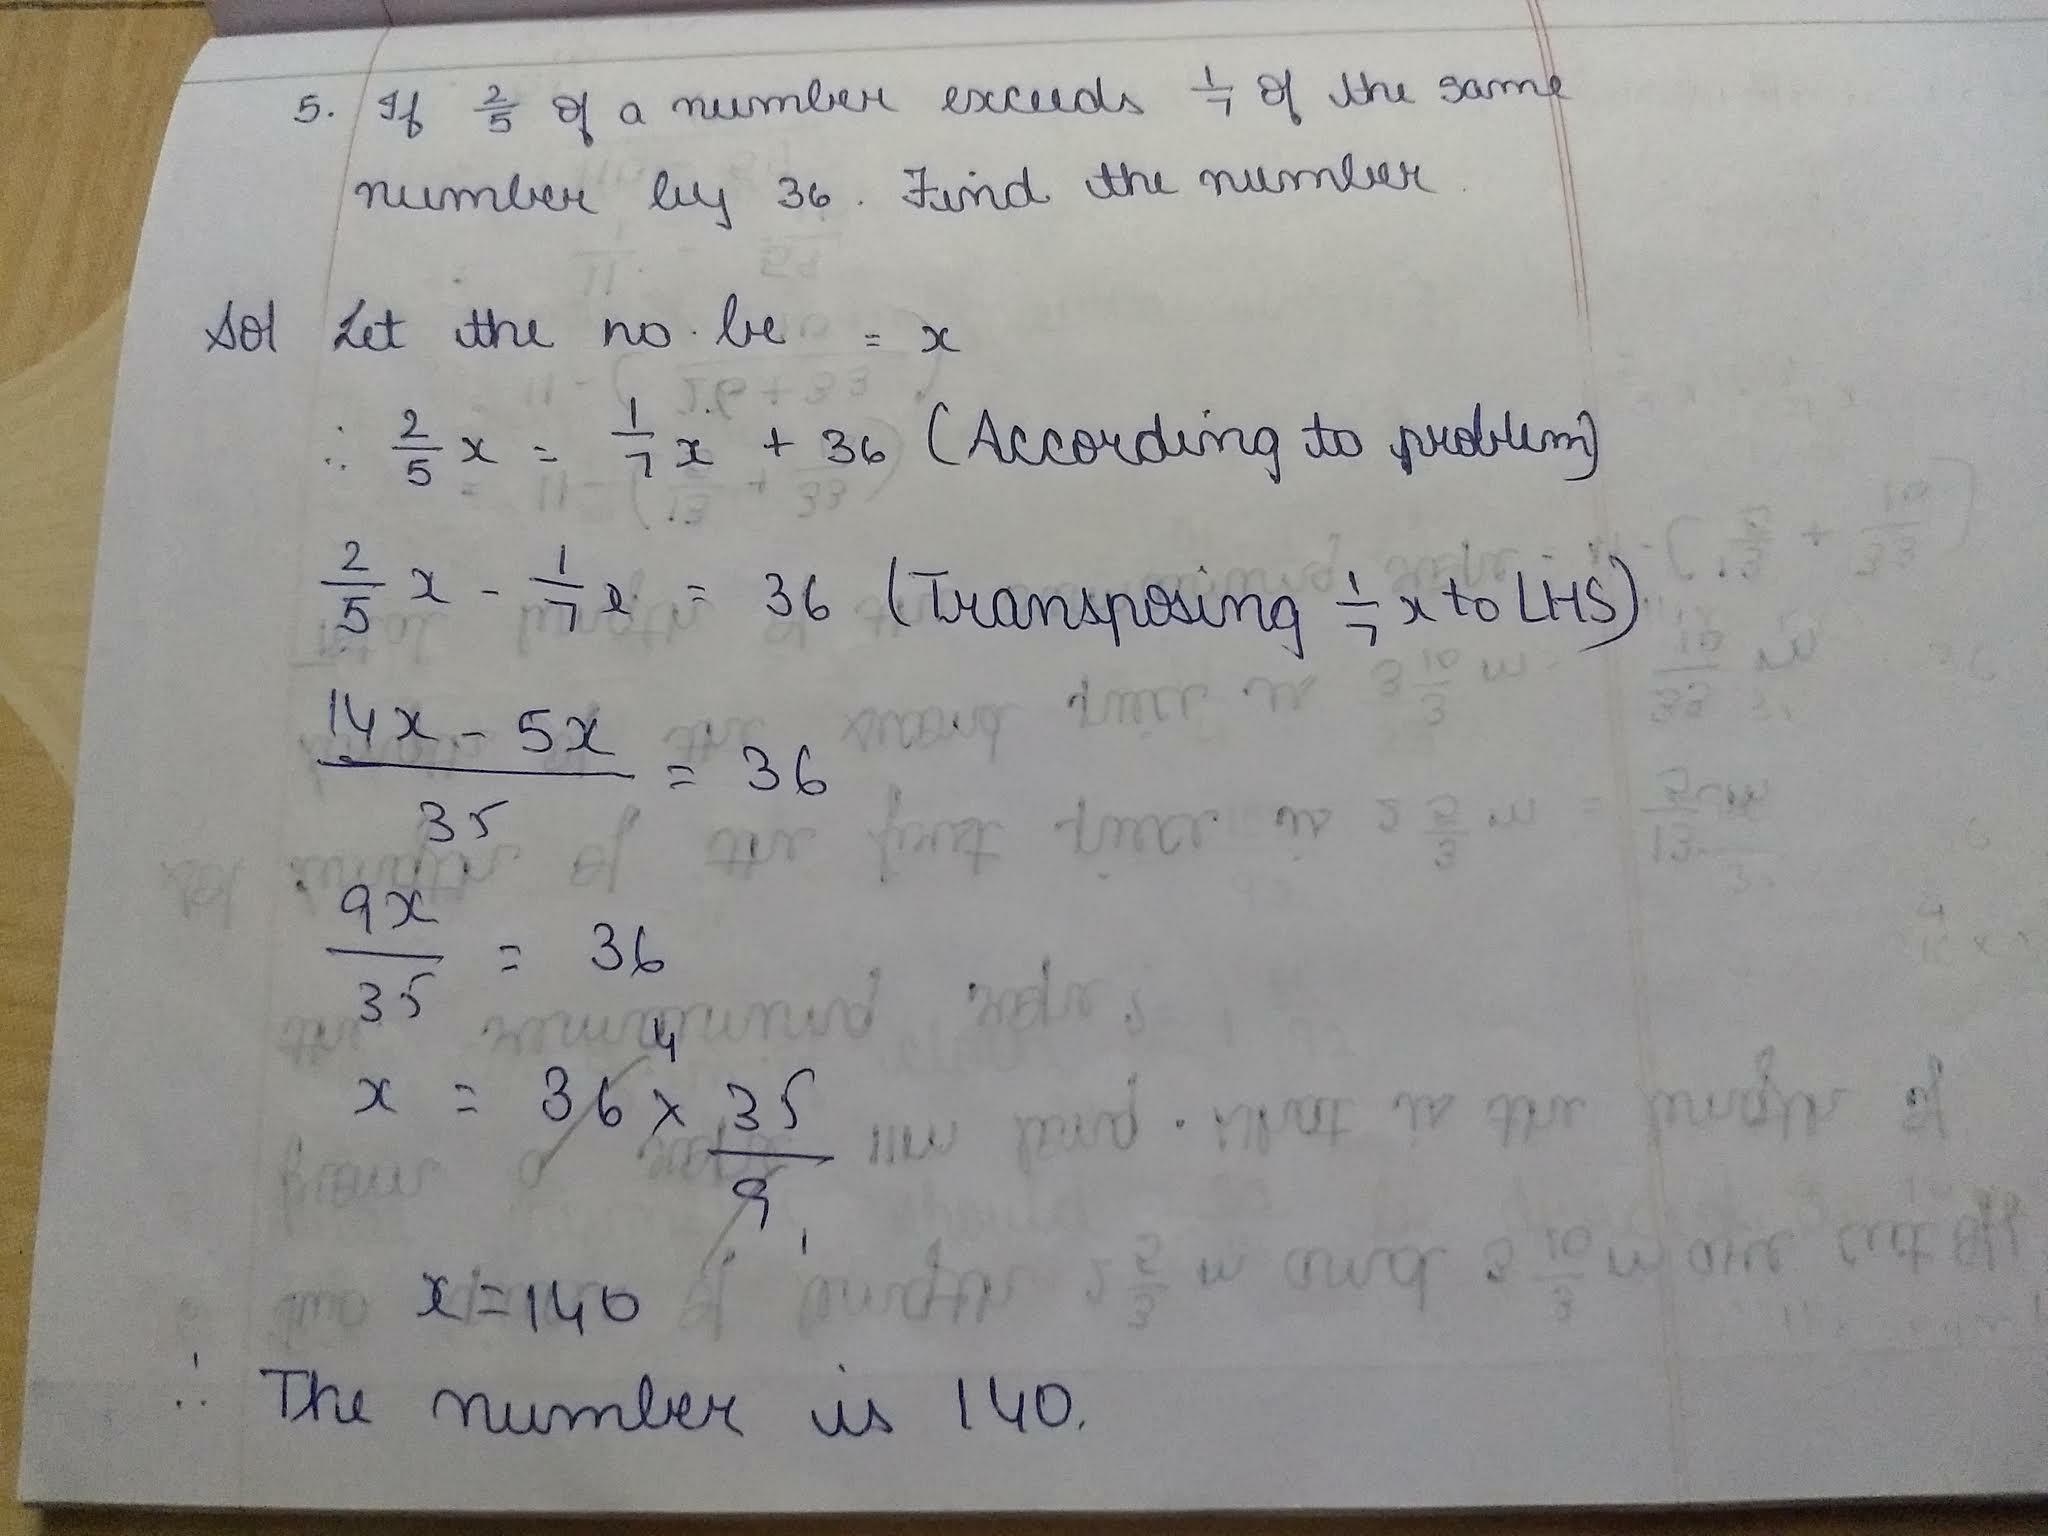 5. If 2/5 of a number exceeds 1/7 of the same
number by 36. Find the number.
Sol Let the no. be = x
∴ 2/5 x = 1/7 x + 36 (According to problem)
2/5 x - 1/7 x = 36 (Transposing 1/7 x to LHS)
(14x - 5x)/35 = 36
9x/35 = 36
x = 36 4 × 35/9 1
x = 140
∴ The number is 140.